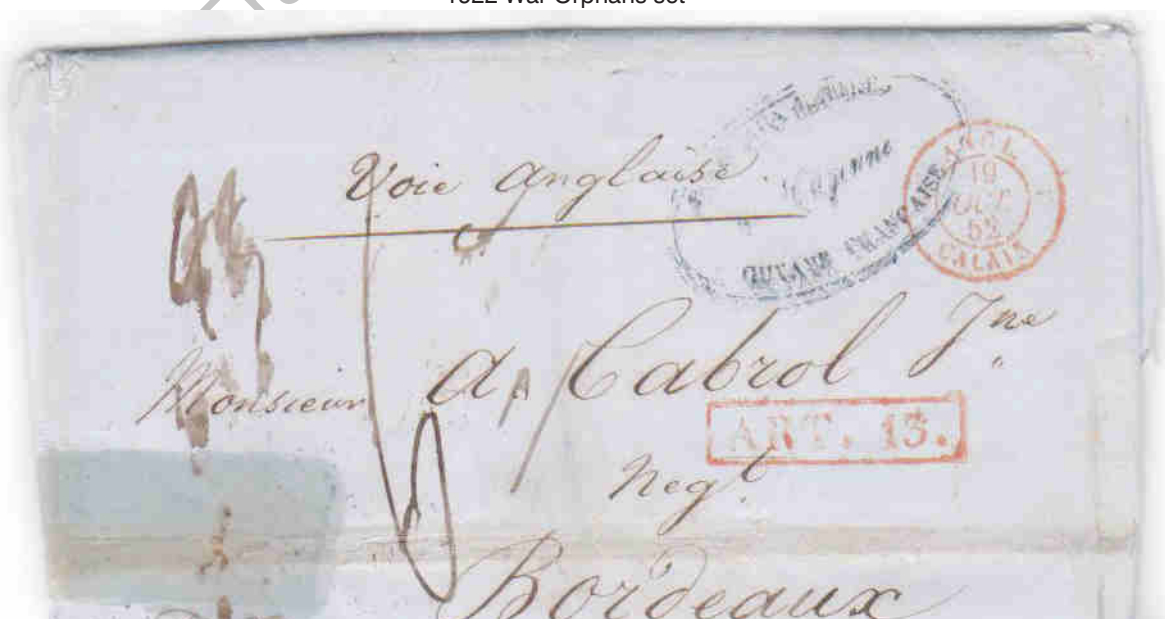 1922 War Orphans set
Voie Anglaise.
Cayenne
GUYANE FRANÇAISE
ANGL.
19
OCT.
52
CALAIS
Monsieur A. Cabrol Jne
ART. 13.
Negt
Bordeaux